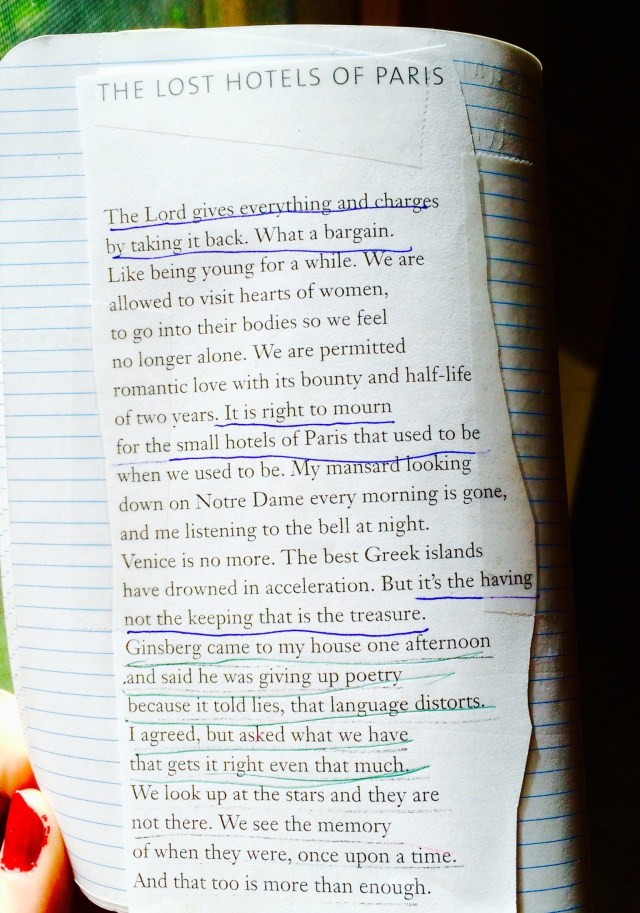 THE LOST HOTELS OF PARIS
The Lord gives everything and charges
by taking it back. What a bargain.
Like being young for a while. We are
allowed to visit hearts of women,
to go into their bodies so we feel
no longer alone. We are permitted
romantic love with its bounty and half-life
of two years. It is right to mourn
for the small hotels of Paris that used to be
when we used to be. My mansard looking
down on Notre Dame every morning is gone,
and me listening to the bell at night.
Venice is no more. The best Greek islands
have drowned in acceleration. But it's the having
not the keeping that is the treasure.
Ginsberg came to my house one afternoon
and said he was giving up poetry
because it told lies, that language distorts.
I agreed, but asked what we have
that gets it right even that much.
We look up at the stars and they are
not there. We see the memory
of when they were, once upon a time.
And that too is more than enough.